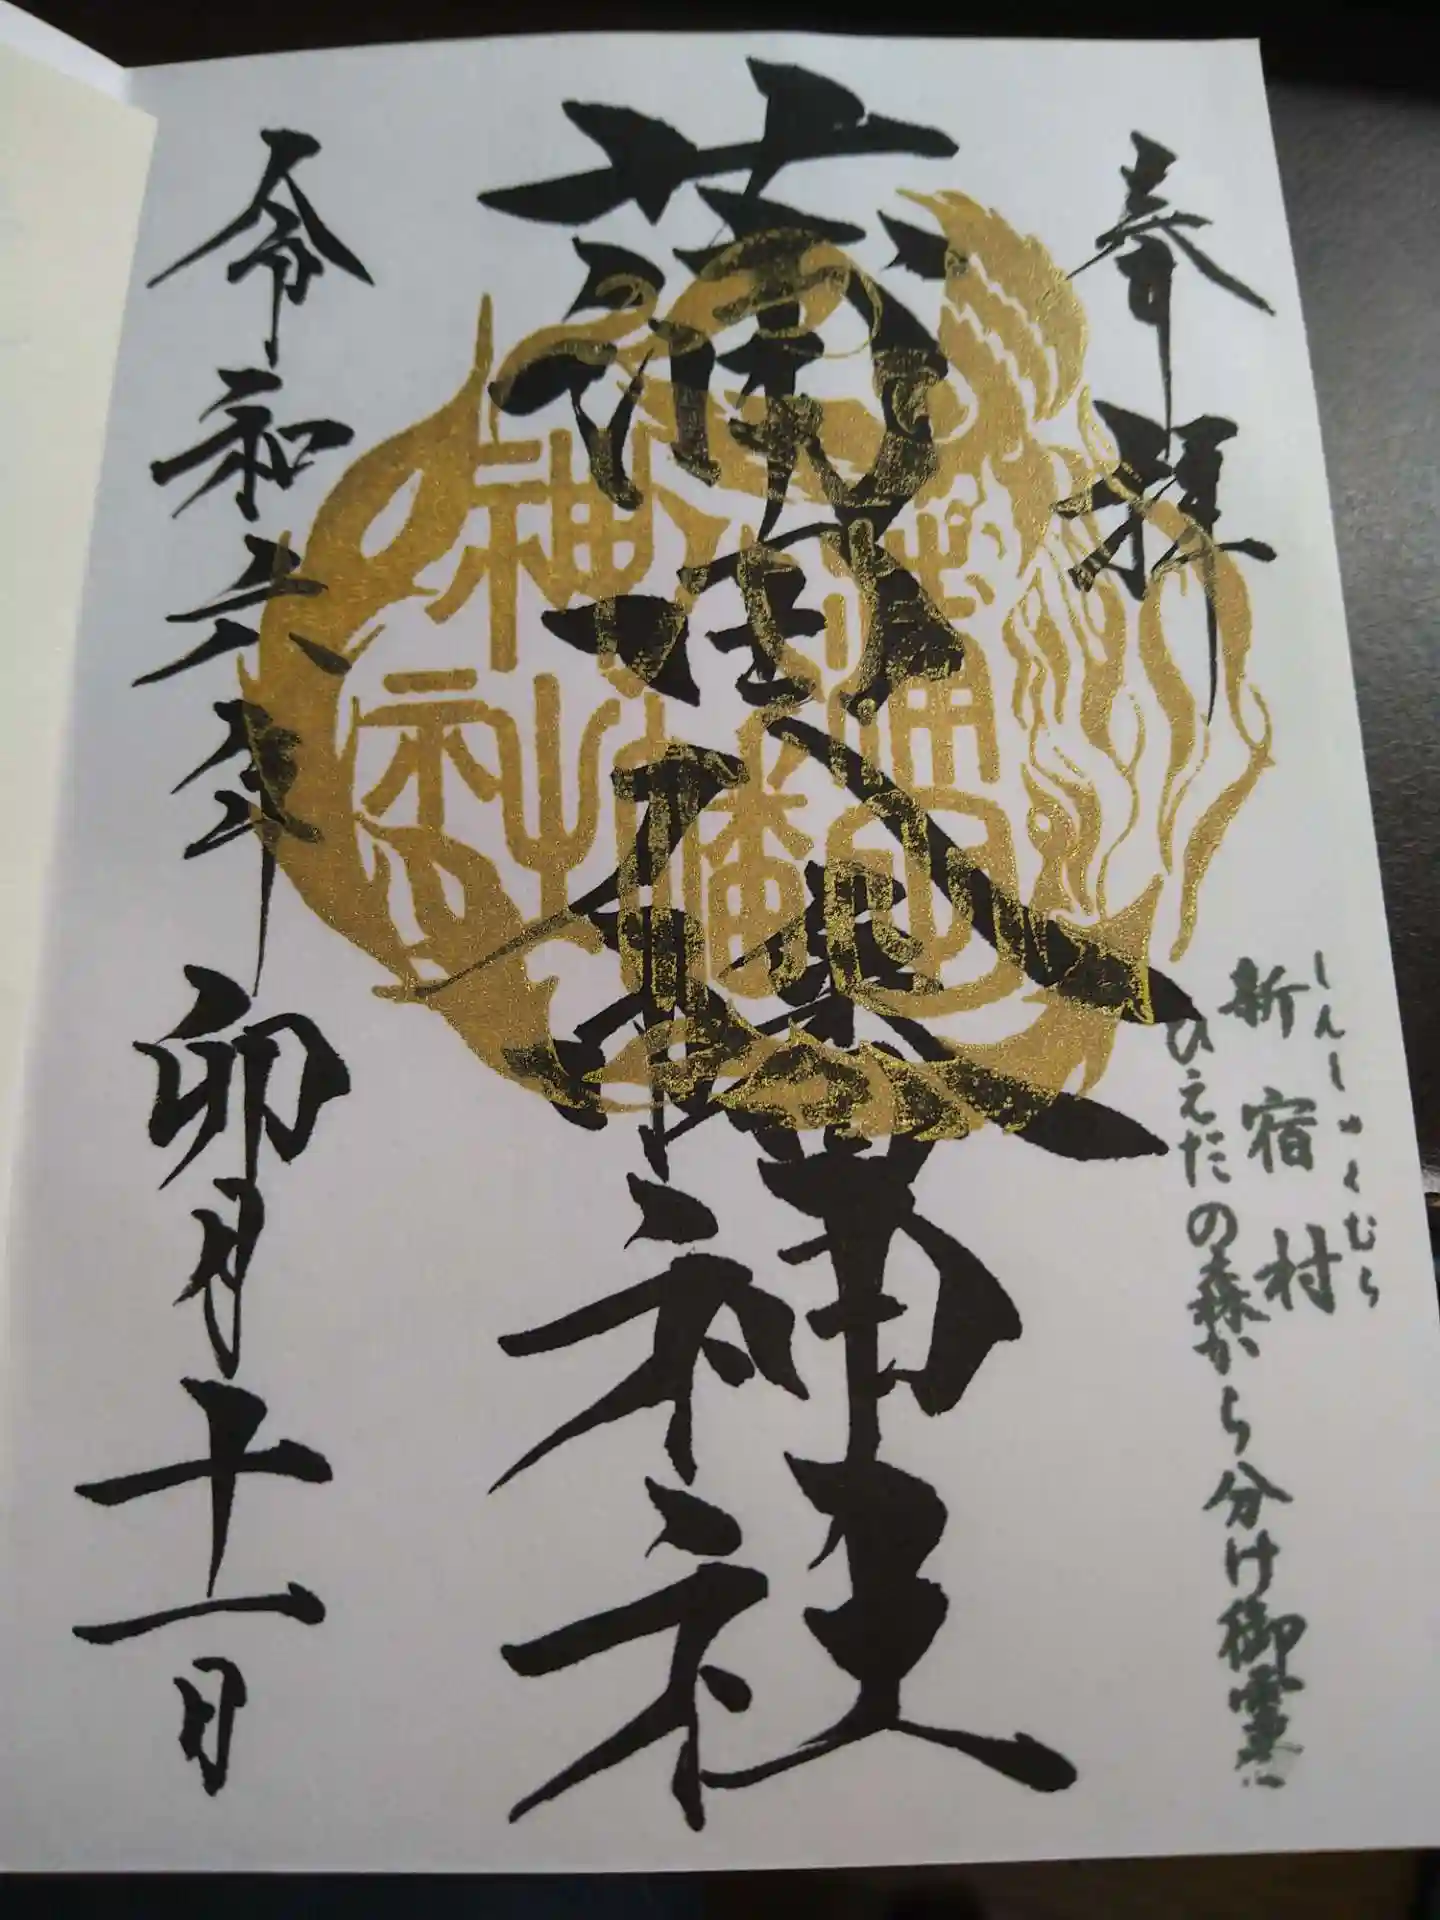 奉拝
しんしゅくむら
新宿村
ひえだの森から分け御霊
蒲田八幡神社
蒲田八幡神社
令和六年卯月十一日